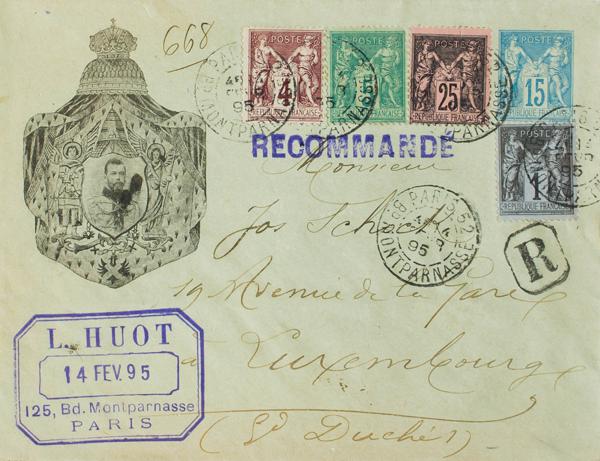 668
POSTE 4 REPUBLIQUE FRANÇAISE
POSTE REPUBLIQUE FRANÇAISE
POSTE 25 REPUBLIQUE FRANÇAISE
POSTE 15 REPUBLIQUE FRANÇAISE
RECOMMANDÉ
POSTE 1 REPUBLIQUE FRANÇAISE
Monsieur
Jos Schock
PARIS 52
95
MONTPARNASSE
R
19 Avenue de la Gare
à Luxembourg
(Gd Duché)
L. HUOT
14 FEV. 95
125, Bd. Montparnasse
PARIS